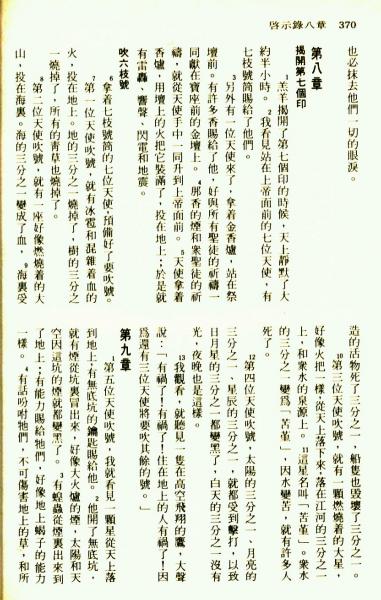 啓示錄八章 370
也必抹去他們一切的眼淚。
第八章
揭開第七個印
1羔羊揭開了第七個印的時候,天上靜默了大
約半小時。2我看見站在上帝面前的七位天使,有
七枝號筒賜給了他們。
3另外有一位天使來了,拿着金香爐,站在祭
壇前。有許多香賜給了他,好與所有聖徒的祈禱一
同獻在寶座前的金壇上。4那香的煙和衆聖徒的祈
禱,就從天使手中一同升到上帝面前。5天使拿着
香爐,用壇上的火把它裝滿了,投在地上;於是就
有雷轟、響聲、閃電和地震。
吹六枝號
6拿着七枝號筒的七位天使,預備好了要吹號。
7第一位天使吹號,就有冰雹和混雜着血的
火,投在地上。地的三分之一燒掉了,樹的三分之
一燒掉了,所有的青草也燒掉了。
8第二位天使吹號,就有一座好像燃燒着的大
山,投在海裏。海的三分之一變成了血,9海裏受
造的活物死了三分之一,船隻也毀壞了三分之一。
10第三位天使吹號,就有一顆燃燒着的大星,
好像火把一樣,從天上落下來,落在江河的三分之一
上,和衆水的泉源上。11這星名叫「苦堇」。衆水
的三分之一變爲「苦堇」,因水變苦,就有許多人
死了。
12第四位天使吹號,太陽的三分之一、月亮的
三分之一、星辰的三分之一,就都受到擊打,以致
日月星的三分之一都變黑了,白天的三分之一沒有
光,夜晚也是這樣。
13我觀看,就聽見一隻在高空飛翔的鷹,大聲
說:「有禍了!有禍了!住在地上的人有禍了!因
爲還有三位天使將要吹其餘的號。」
第九章
1第五位天使吹號,我就看見一顆星從天上落
到地上,有無底坑的鑰匙賜給他。2他開了無底坑,
就有煙從坑裏冒出來,好像大火爐的煙,太陽和天
空因這坑的煙就都變黑了。3有蝗蟲從煙裏出來到
了地上;有能力賜給牠們,好像地上蝎子的能力
一樣。4有話吩咐牠們,不可傷害地上的草,和所